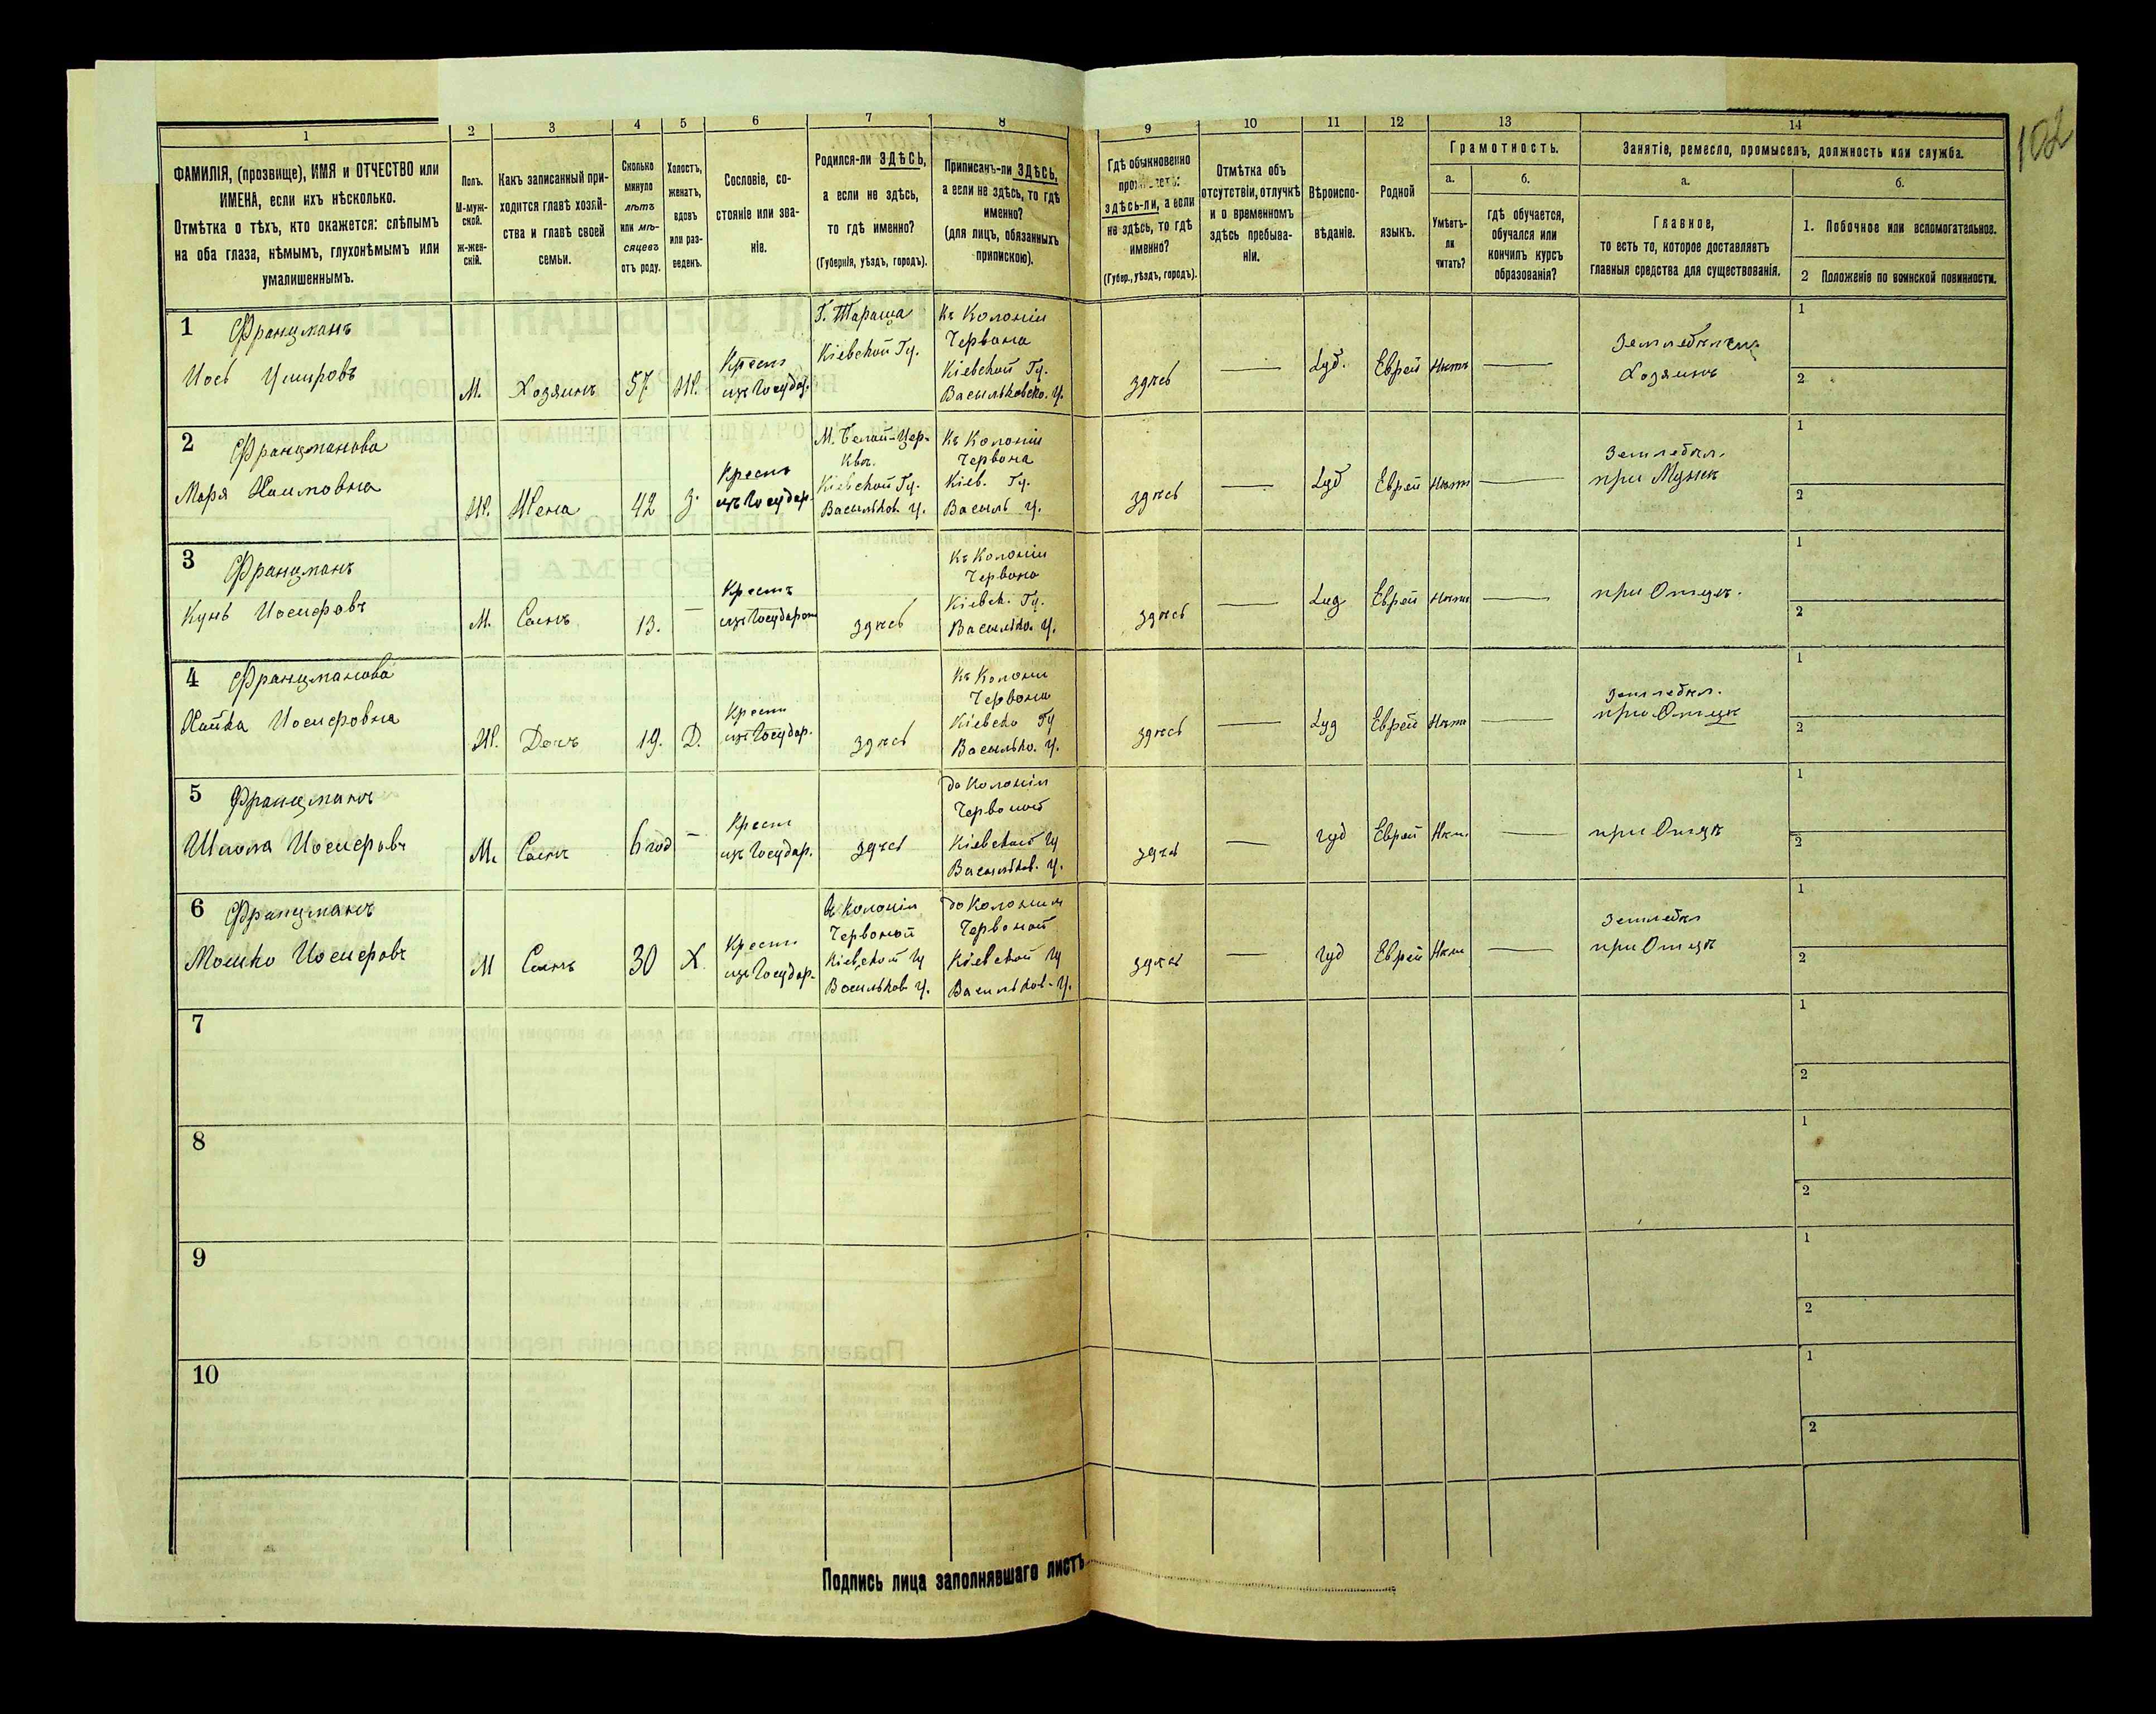 102
1
2
3
4
5
6
7
8
9
10
11
12
13
14
ФАМИЛІЯ, (прозвище), ИМЯ и ОТЧЕСТВО или
ИМЕНА, если ихъ нѣсколько.
Отмѣтка о тѣхъ, кто окажется: слѣпымъ
на оба глаза, нѣмымъ, глухонѣмымъ или
умалишеннымъ.
Полъ.
М-муж-
ской.
ж-жен-
скій.
Какъ записанный при-
ходится главѣ хозяй-
ства и главѣ своей
семьи.
Сколько
минуло
лѣтъ
или мѣ-
сяцевъ
отъ роду.
Холостъ,
женатъ,
вдовъ
или раз-
веденъ.
Сословіе, со-
стояніе или зва-
ніе.
Родился-ли ЗДѢСЬ,
а если не здѣсь,
то гдѣ именно?
(Губернія, уѣздъ, городъ).
Приписанъ-ли ЗДѢСЬ,
а если не здѣсь, то гдѣ
именно?
(для лицъ, обязанныхъ
припискою).
Гдѣ обыкновенно
здѣсь-ли, а если
не здѣсь, то гдѣ
именно?
(Губер., уѣздъ, городъ).
Отмѣтка объ
отсутствіи, отлучкѣ
и о временномъ
здѣсь пребыва-
ніи.
Вѣроиспо-
вѣданіе.
Родной
языкъ.
Грамотность.
а.
Умѣетъ-
ли
читать?
б.
гдѣ обучается,
обучался или
кончилъ курсъ
образованія?
Занятіе, ремесло, промыселъ, должность или служба.
а.
Главное,
то есть то, которое доставляетъ
главныя средства для существованія.
б.
1. Побочное или вспомогательное.
2 Положеніе по воинской повинности.
1 Францманъ
Иось
М.
Хозяинъ
57
Ж.
Крест
изъ Государ.
Г. Тараща
Кіевской Гу.
Къ Колоніи
Червона
Кіевской Гу.
Васильковско. У.
здѣсь
—
Іуд.
Еврей
Нѣтъ
—
Хозяинъ
1
2
2 Францманова
Маря Хаимовна
Ж.
Жена
42
З.
Крест
изъ Государ.
М. Белай-Цер-
ква.
Кіевской Гу.
Васильков. У.
Къ Колоніи
Червона
Кіев. Гу.
Василь У.
здѣсь
—
Іуд
Еврей
Нѣтъ
—
Земледѣл.
при Мужѣ
1
2
3 Францманъ
Іосифовъ
М.
Сынъ
13.
—
Крест
здѣсь
Къ Колоніи
Червона
Кіевск. Гу.
Василько. У.
здѣсь
—
Іуд
Еврей
Нѣтъ
—
при Отцѣ.
1
2
4 Францманова
Хайка Іосифовна
Ж.
Дочь
19.
Д.
Крест
изъ Государ.
здѣсь
Къ Колоніи
Червона
Кіевско Гу
Василько. У.
здѣсь
—
Іуд
Еврей
Нѣтъ
—
Земледѣл.
при Отцѣ
1
2
5 Францманъ
Іосифовъ
М.
Сынъ
6 год
–
Крест
изъ Государ.
здѣсь
до Колоніи
Червоной
Кіевской Гу
Васильков. У.
здѣсь
—
Іуд
Еврей
Нѣт.
—
при Отцѣ
1
2
6 Францманъ
Мошко Іосифовъ
М
Сынъ
30
Х
Крест
изъ Государ.
в Колоніи
Червоной
Кіевской Гу
Васильков У.
до Колоніи
Червоной
Кіевской Гу
Васильков. У.
здѣсь
—
Іуд
Еврей
Нѣт
—
Земледѣл
при Отцѣ
1
2
7
1
2
8
1
2
9
1
2
10
1
2
Подпись лица заполнявшаго листъ